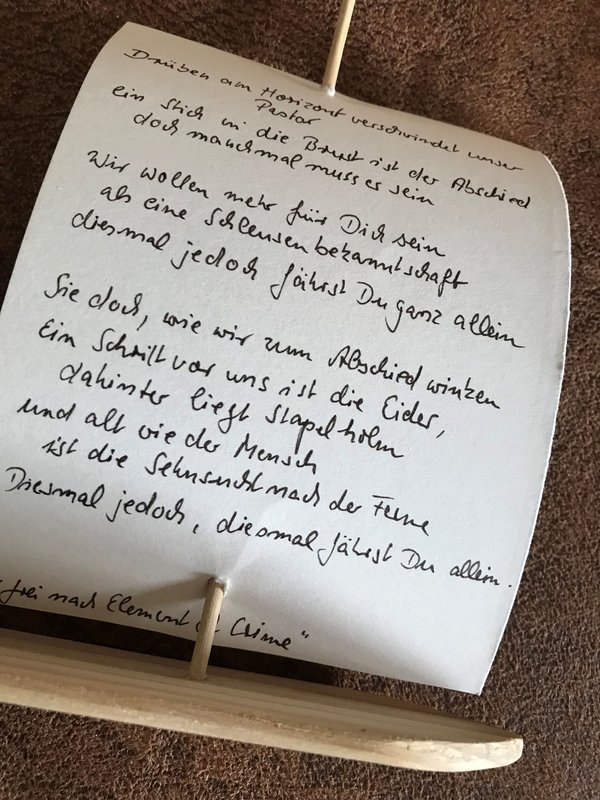 Drüben am Horizont verschwindet unser
Pastor
ein Stich in die Brust ist der Abschied
doch manchmal muss es sein
Wir wollen mehr für Dich sein
als eine Schleusenbekanntschaft
diesmal jedoch fährst Du ganz allein
Sie doch, wie wir zum Abschied winken
Ein Schritt vor uns ist die Eider,
dahinter liegt Stapelholm
und alt wie der Mensch
ist die Sehnsucht nach der Ferne
Diesmal jedoch, diesmal fährst Du allein.
"frei nach Element of Crime"